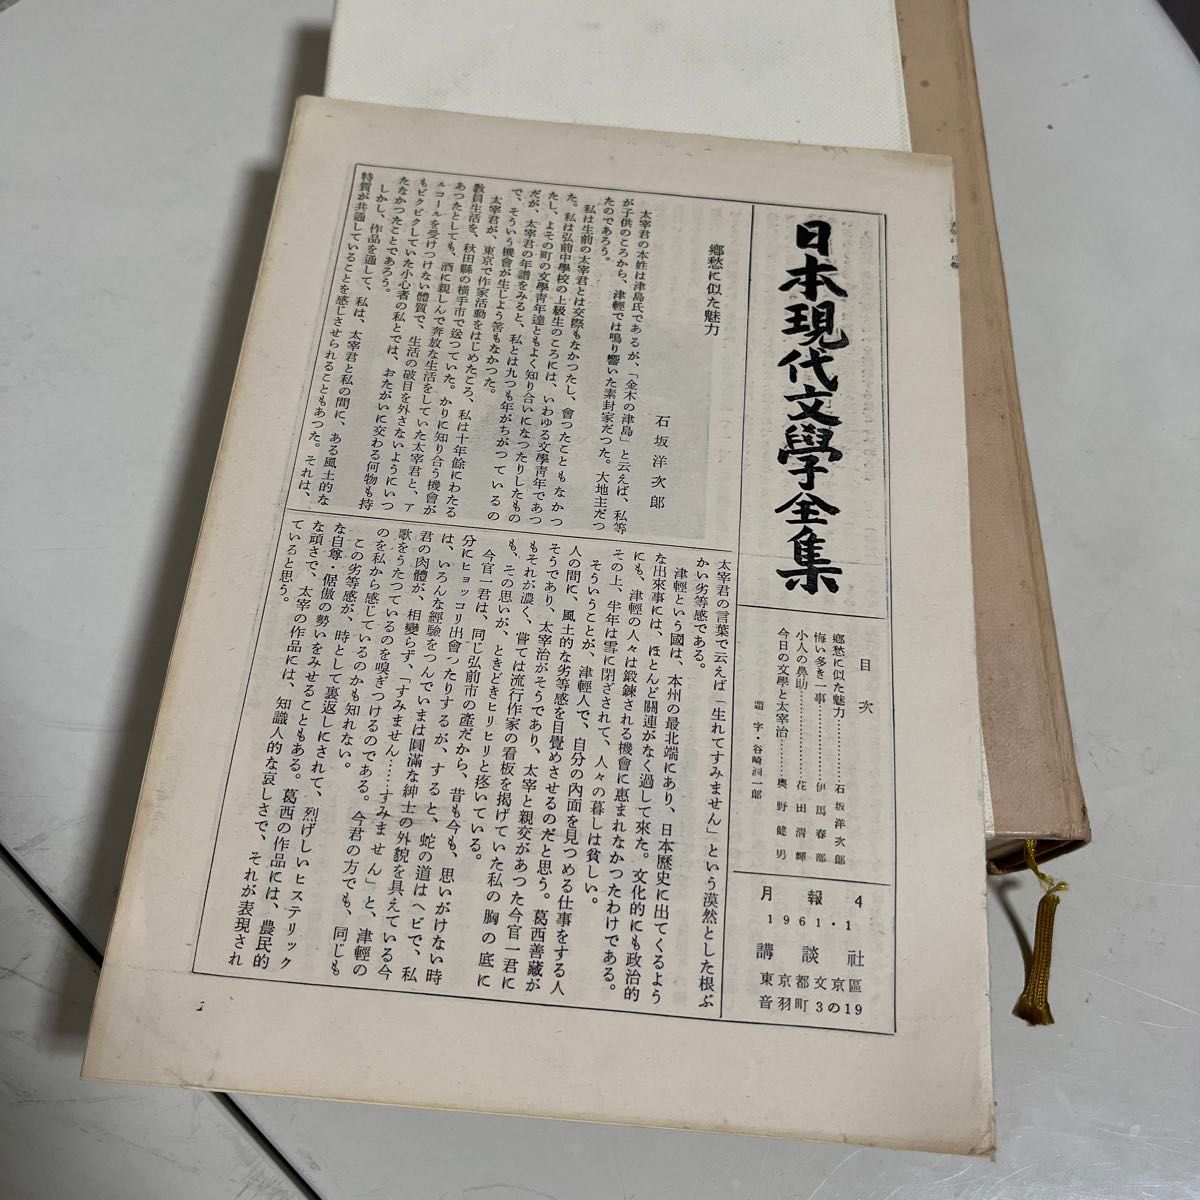 日本現代文學全集
目次
鄕愁に似た魅力…………石坂洋次郎
悔い多き一事…………伊馬春部
小人の鼻助…………花田淸輝
今日の文學と太宰治………奧野健男
題字・谷崎潤一郎
月報4
1961・1
講談社
東京都文京區
音羽町3の19
鄕愁に似た魅力
石坂洋次郎
太宰君の本姓は津島氏であるが、「金木の津島」と云えば、私等
が子供のころから、津輕では鳴り響いた素封家だつた。大地主だつ
たのであろう。
私は生前の太宰君とは交際もなかつたし、會つたこともなかつ
た。私は弘前中學校の上級生のころには、いわゆる文學靑年であつ
たし、よその町の文學靑年達ともよく知り合いになつたりしたもの
だが、太宰君の年譜をみると、私とは九つも年がちがつているの
で、そういう機會が生じよう筈もなかつた。
太宰君が、東京で作家活動をはじめたころ、私は十年餘にわたる
敎員生活を、秋田縣の橫手市で送つていた。かりに知り合う機會が
あつたとしても、酒に親しんで奔放な生活をしていた太宰君と、ア
ルコールを受けつけない體質で、生活の破目を外さないようにいつ
もビクビクしていた小心者の私とでは、おたがいに交わる何物も持
たなかつたことであろう。
しかし、作品を通して、私は、太宰君と私の間に、ある風土的な
特質が共通していることを感じさせられることもあつた。それは、
太宰君の言葉で云えば「生れてすみません」という漠然とした根ぶ
かい劣等感である。
津輕という國は、本州の最北端にあり、日本歷史に出てくるよう
な出來事には、ほとんど關連がなく過して來た。文化的にも政治的
にも、津輕の人々は鍛鍊される機會に惠まれなかつたわけである。
その上、半年は雪に閉ざされて、人々の暮しは貧しい。
そういうことが、津輕人で、自分の內面を見つめる仕事をする人
人の間に、風土的な劣等感を目覺めさせるのだと思う。葛西善藏が
そうであり、太宰治がそうであり、太宰と親交があつた今官一君に
もそれが濃く、嘗ては流行作家の看板を揭げていた私の胸の底に
も、その思いが、ときどきヒリヒリと疼いている。
今官一君は、同じ弘前市の產だから、昔も今も、思いがけない時
分にヒョッコリ出會つたりするが、すると、蛇の道はヘビで、私
は、いろんな經驗をつんでいまは圓滿な紳士の外貌を具えている今
君の肉體が、相變らず、「すみません……すみません」と、津輕の
歌をうたつているのを嗅ぎつけるのである。今君の方でも、同じも
のを私から感じているのかも知れない。
この劣等感が、時として裏返しにされて、烈げしいヒステリック
な自尊・倨傲の勢いをみせることもある。葛西の作品には、農民的
な頑さで、太宰の作品には、知識人的な哀しさで、それが表現され
ていると思う。
1